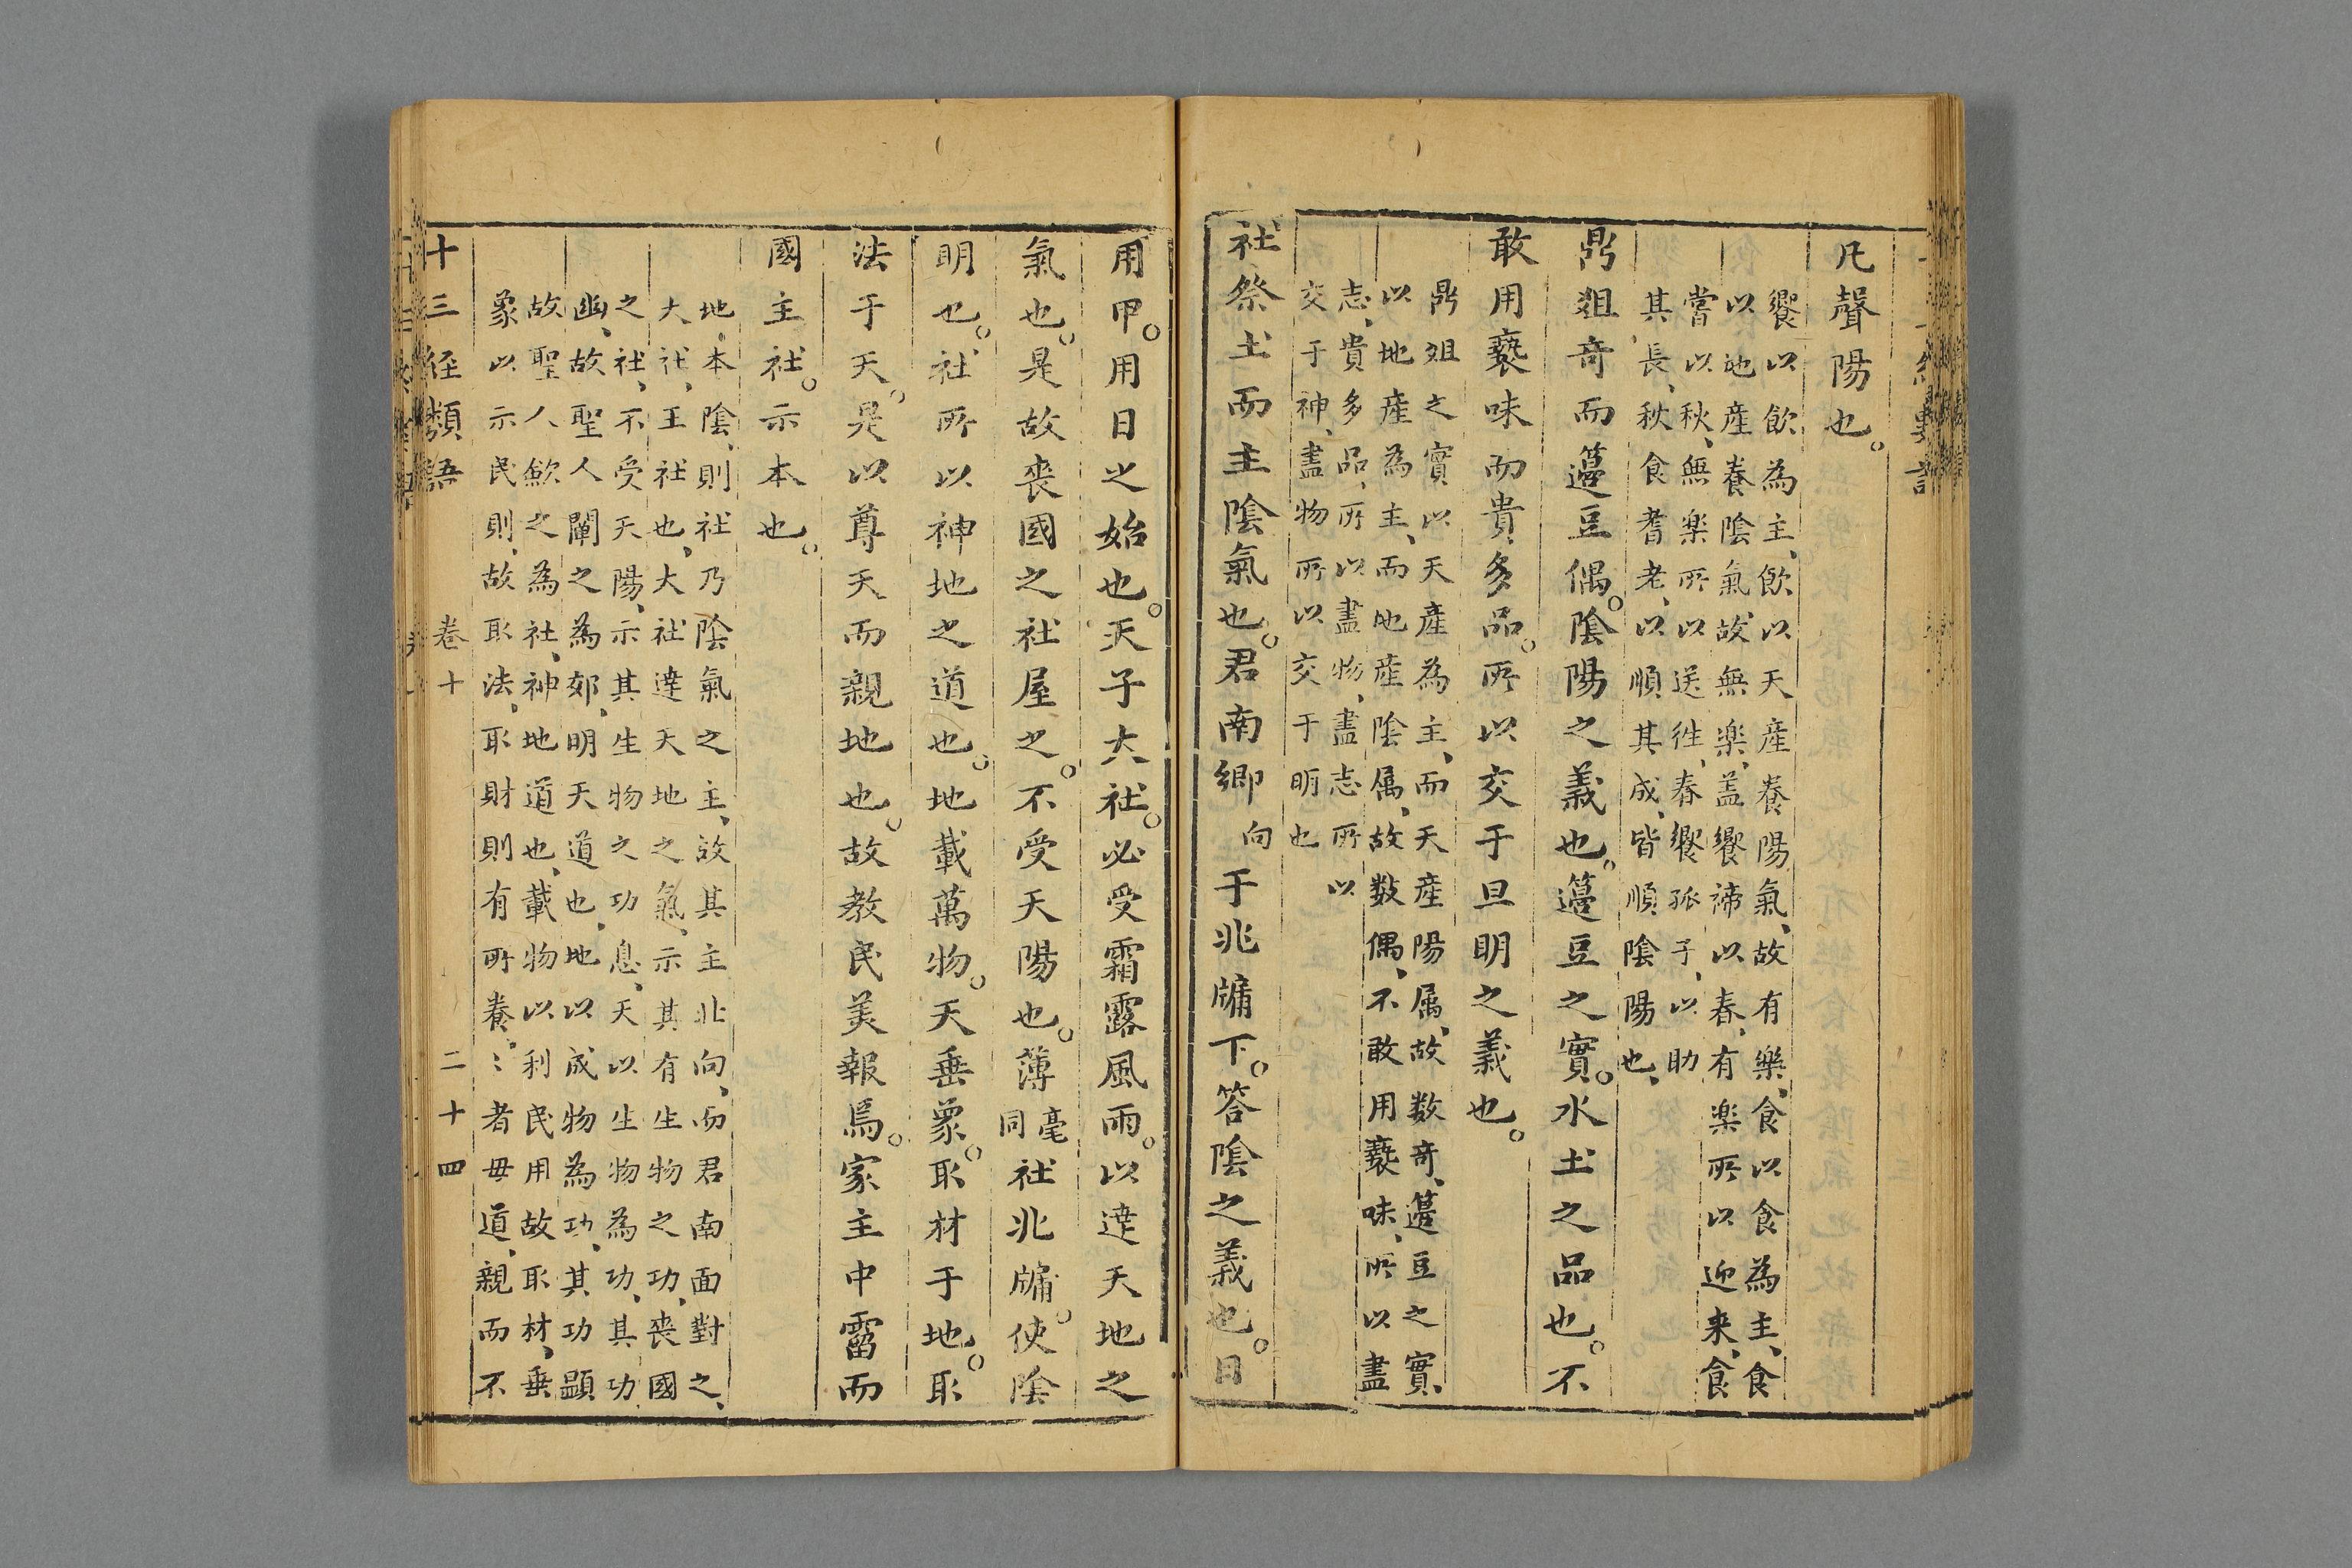 凡聲陽也。
饗以飲為主、飲以天産養陽氣、故有樂、食以食為主、食
以地産養陰氣故無楽、盖饗禘以春、有楽所以迎来、食
嘗以秋、無楽所以送徃、春饗孤子、以助
其長、秋食耆老、以順其成、皆順陰陽也、
鼎俎竒而籩豆偶。陰陽之義也。籩豆之實。水土之品也。不
敢用䙝味而貴多品。所以交于旦明之義也。
鼎俎之實以天産為主、而天産陽属、故数竒、籩豆之實、
以地産為主、而地産陰属、故数偶、不敢用䙝味、所以盡
志、貴多品、所以盡物、盡志所以
交于神、盡物所以交于明也
社祭土而主陰氣也。君南郷向于北牗下。答陰之義也。日
用甲。用日之始也。天子大社。必受霜露風雨。以達天地之
氣也。是故喪國之社屋之。不受天陽也。薄亳同社北牗。使陰
明也。社所以神地之道也。地載萬物。天垂象。取材于地。取
法于天。是以尊天而親地也。故教民美報焉。家主中霤而
國主社。示本也。
地、本陰、則社乃陰氣之主、故其主北向、而君南面對之、
大社、王社也、大社達天地之氣、示其有生物之功、喪國
之社、不受天陽、示其生物之功息、天以生物為功、其功
幽、故聖人闡之為郊、明天道也、地以成物為功、其功顕
故聖人歛之為社、神地道也、載物以利民用故取材、垂
象以示民則、故取法、取財則有所養、〻者毋道、親而不
十三经類語
卷十
二十四